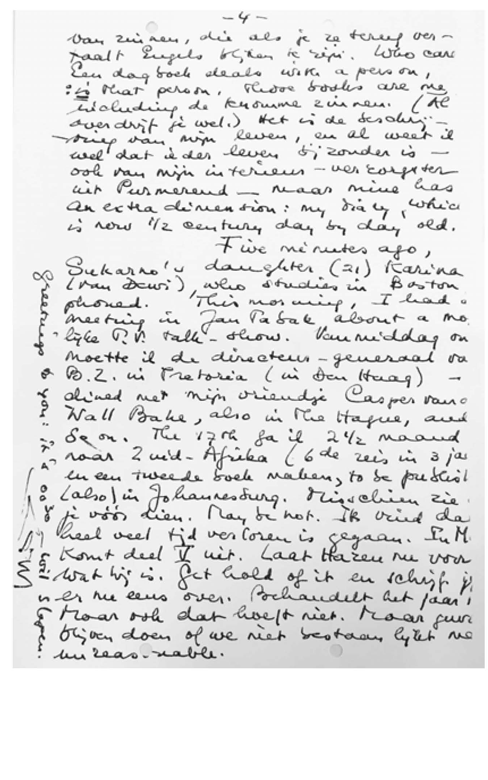 -4-
van zinnen, die als je ze terug ver-
taalt Engels blijken te zijn. Who care
Een dagboek deals with a person,
is that person. Those books are me
including de kromme zinnen. (Al
overdrijf je wel.) Het is de beschrij-
ving van mijn leven, en al weet ik
wel dat ieder leven bijzonder is -
ook van mijn interieur-verzorgster
uit Purmerend - maar mine has
an extra dimension: my diary, which
is now 1/2 century day by day old.
Five minutes ago,
Sukarno's daughter (21) Karina
(van Dewi), who studies in Boston
phoned. This morning, I had a
meeting in Jan Tabak about a mo
lijke T.V. talk-show. Vanmiddag on
moette ik de directeur-generaal va
B.Z. in Pretoria (in Den Haag) -
dined met mijn vriendje Casper van
Wall Bake, also in The Hague, and
so on. The 17th ga ik 2 1/2 maand
naar Zuid-Afrika (6de reis in 3 jaa
en een tweede boek maken, to be publist
(also) in Johannesburg. Misschien zie
je vóór dien. May be not. Ik vind da
heel veel tijd verloren is gegaan. In M
komt deel V uit. Laat Hazeu nu voor
wat hij is. Get hold of it en schrijf j
er nu eens over. Behandelt het jaar
Maar ook dat hoeft niet. Maar
blijven doen of we niet bestaan lijkt me
unreasonable.
greetings to you: it's 00.30 - wil slapen.